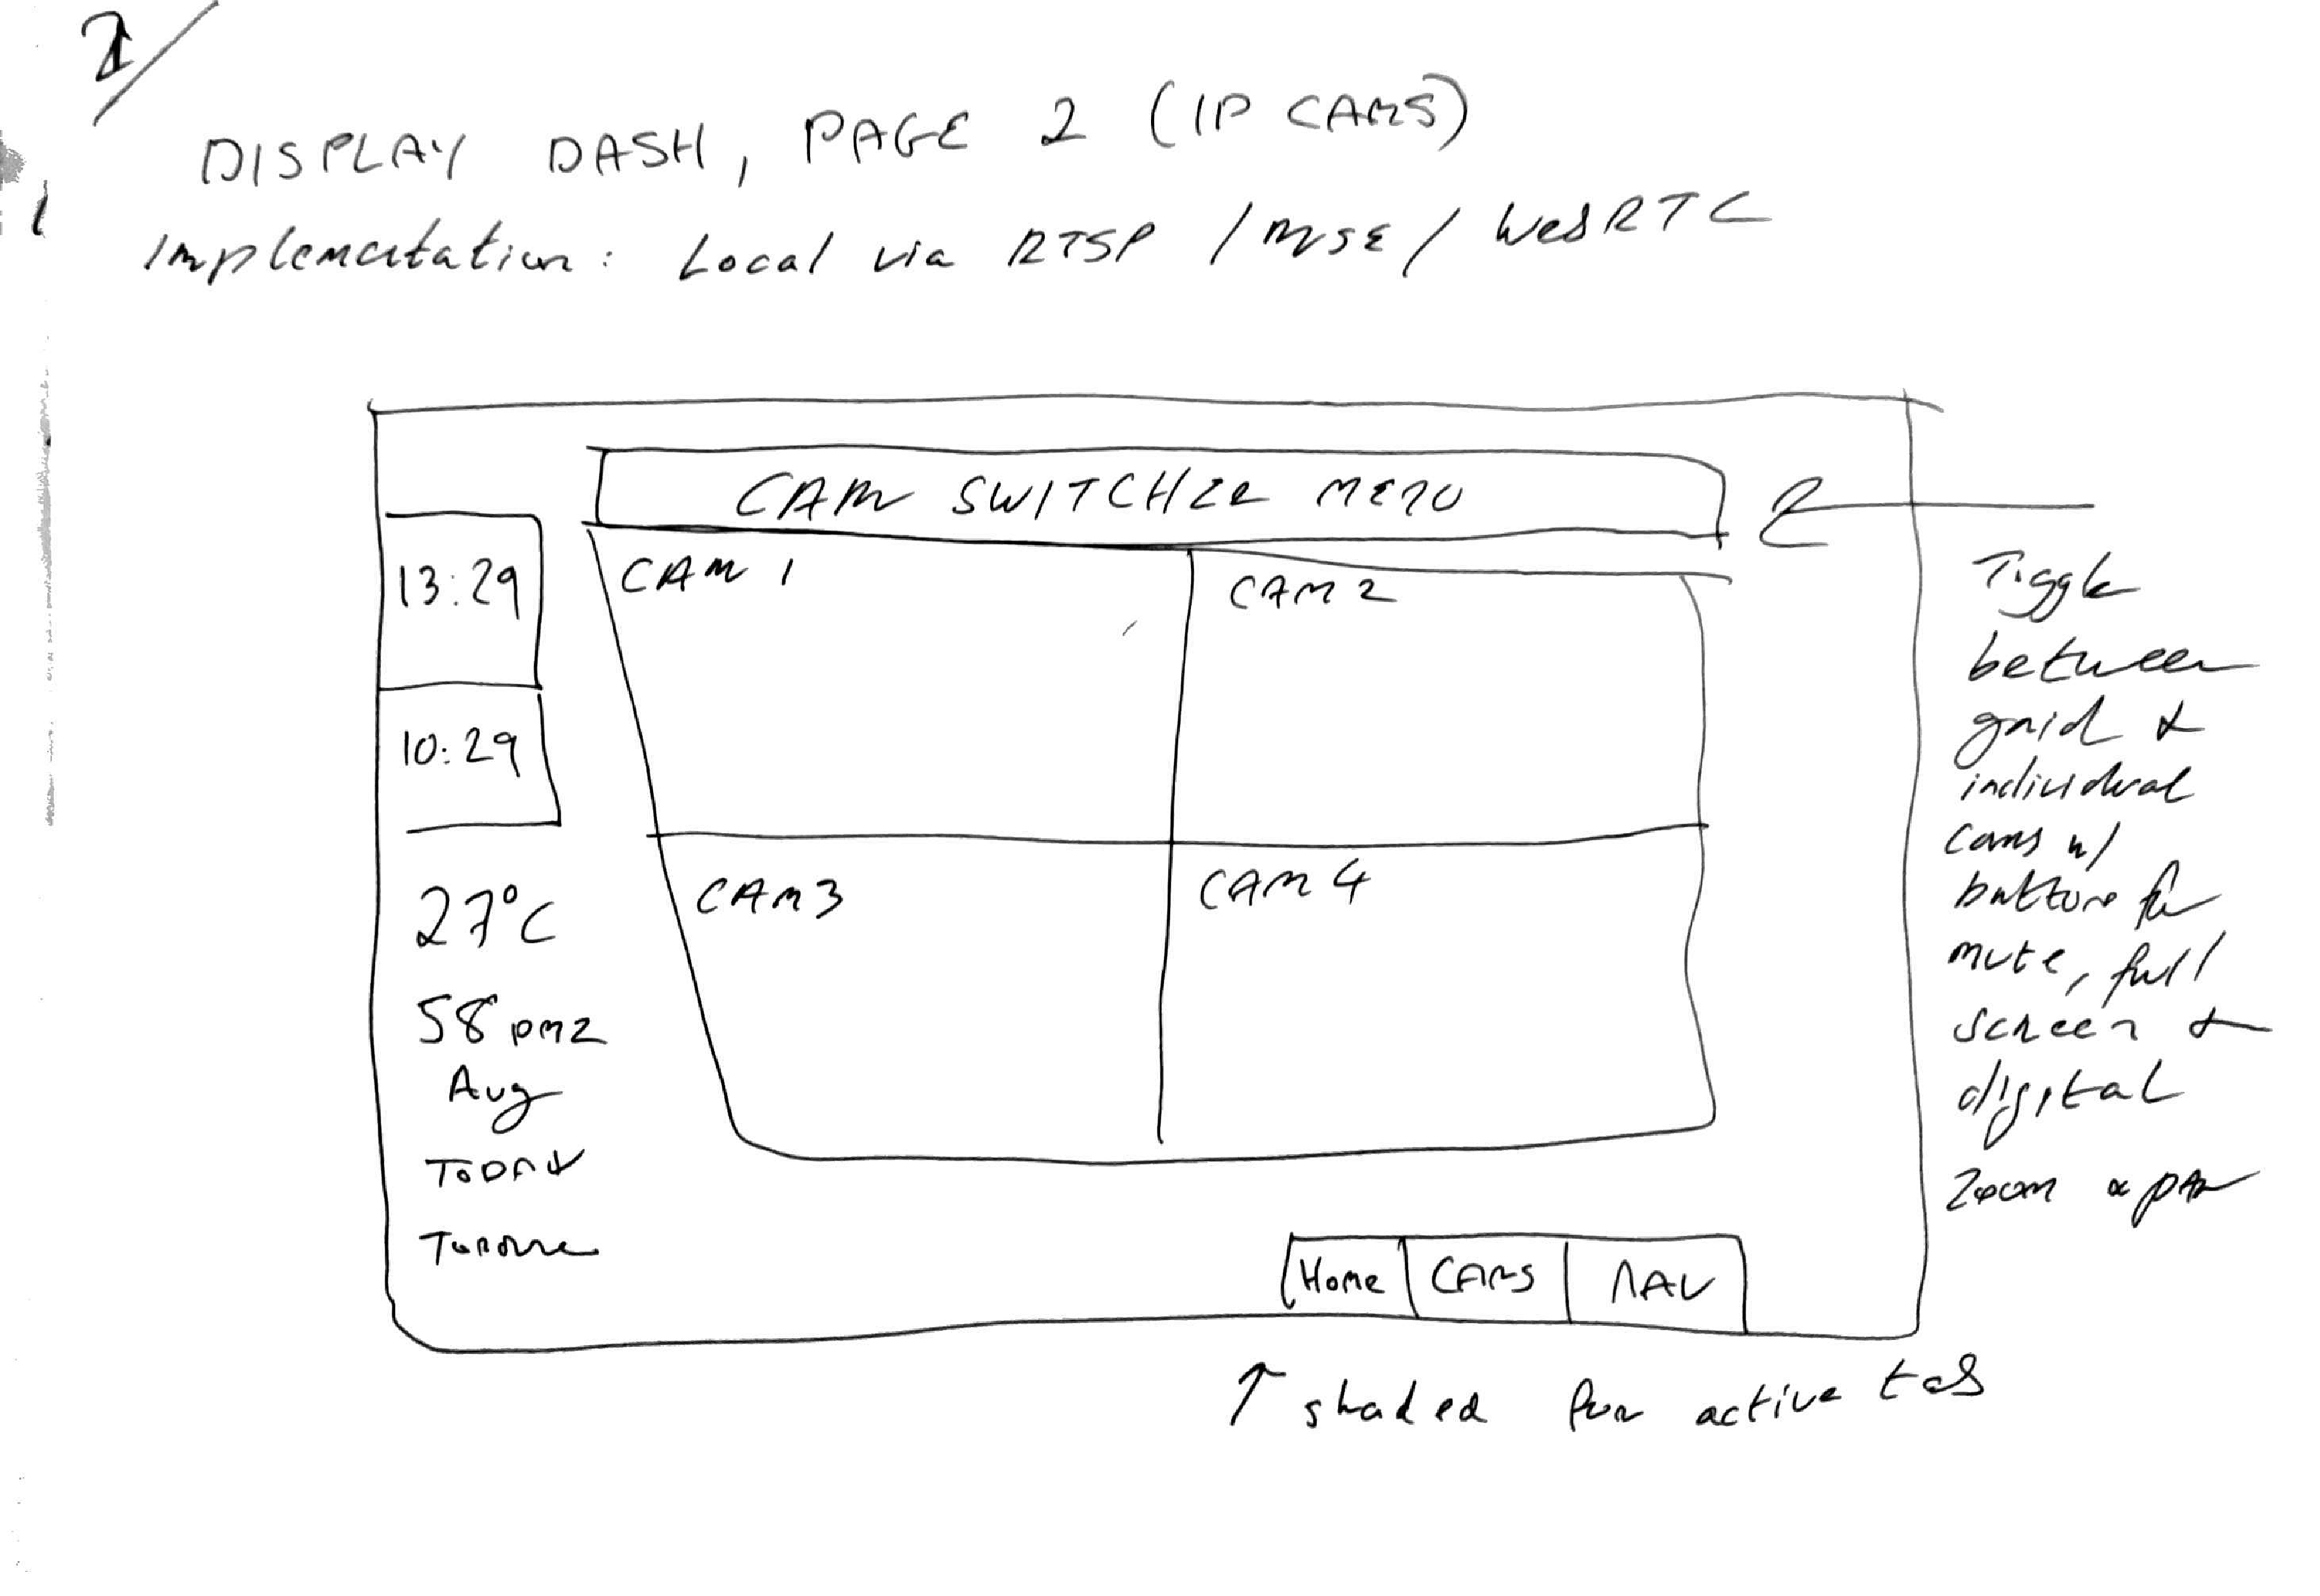 2/
DISPLAY DASH, PAGE 2 (IP CAMS)
Implementation: Local via RTSP / MSE / WebRTC
CAM SWITCHER MENU
13:29
10:29
27°C
58 pm2
Avg
TODAY
CAM 1
CAM 2
CAM 3
CAM 4
Toggle
between
grid &
individual
cams w/
buttons for
mute, full
screen &
digital
zoom & pan
Home
CAMS
NAV
↑ shaded for active tab